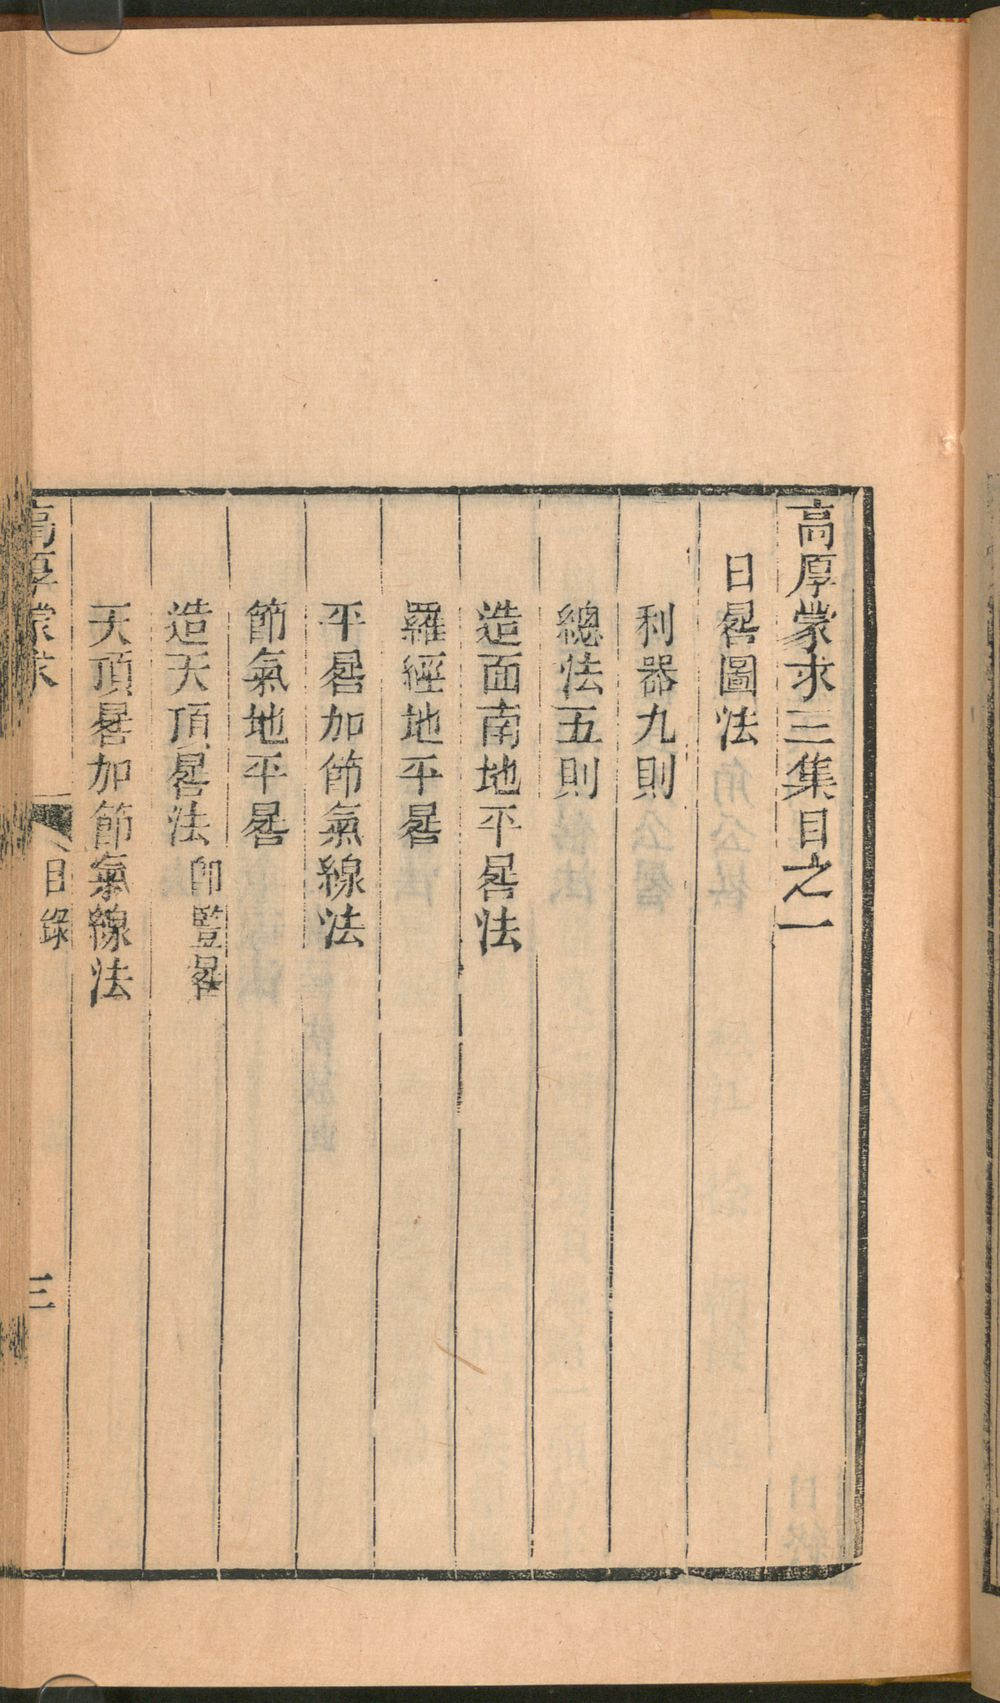 高厚蒙求三集目之一
日晷圖法
利器九則
總法五則
造面南地平晷法
羅經地平晷
平晷加節氣線法
節氣地平晷
造天頂晷法 即豎晷
天頂晷加節氣線法
高厚蒙求 目錄 三